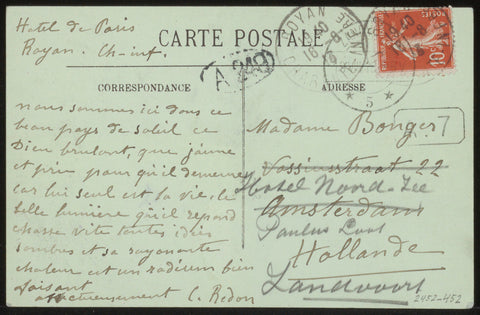 Hotel de Paris
Royan. Ch-inf.
CARTE POSTALE
A 249
ROYAN
18 40
8
CORRESPONDANCE
ADRESSE
* 5 *
10
nous sommes ici dans ce
beau pays de soleil ce
Dieu brulant, que j'aime
et prie pour qu'il demeure
car lui seul est la vie. la
belle lumière qu'il repand
chasse vite toutes idées
sombres et sa rayonante
chaleur est un radieux bien
faisant
affectueusement C. Redon
Madame Bonger
7
Vossiusstraat 22
Hotel Noord-Zee
Amsterdam
Paulus Loot
Hollande
Zandvoort
2452-452